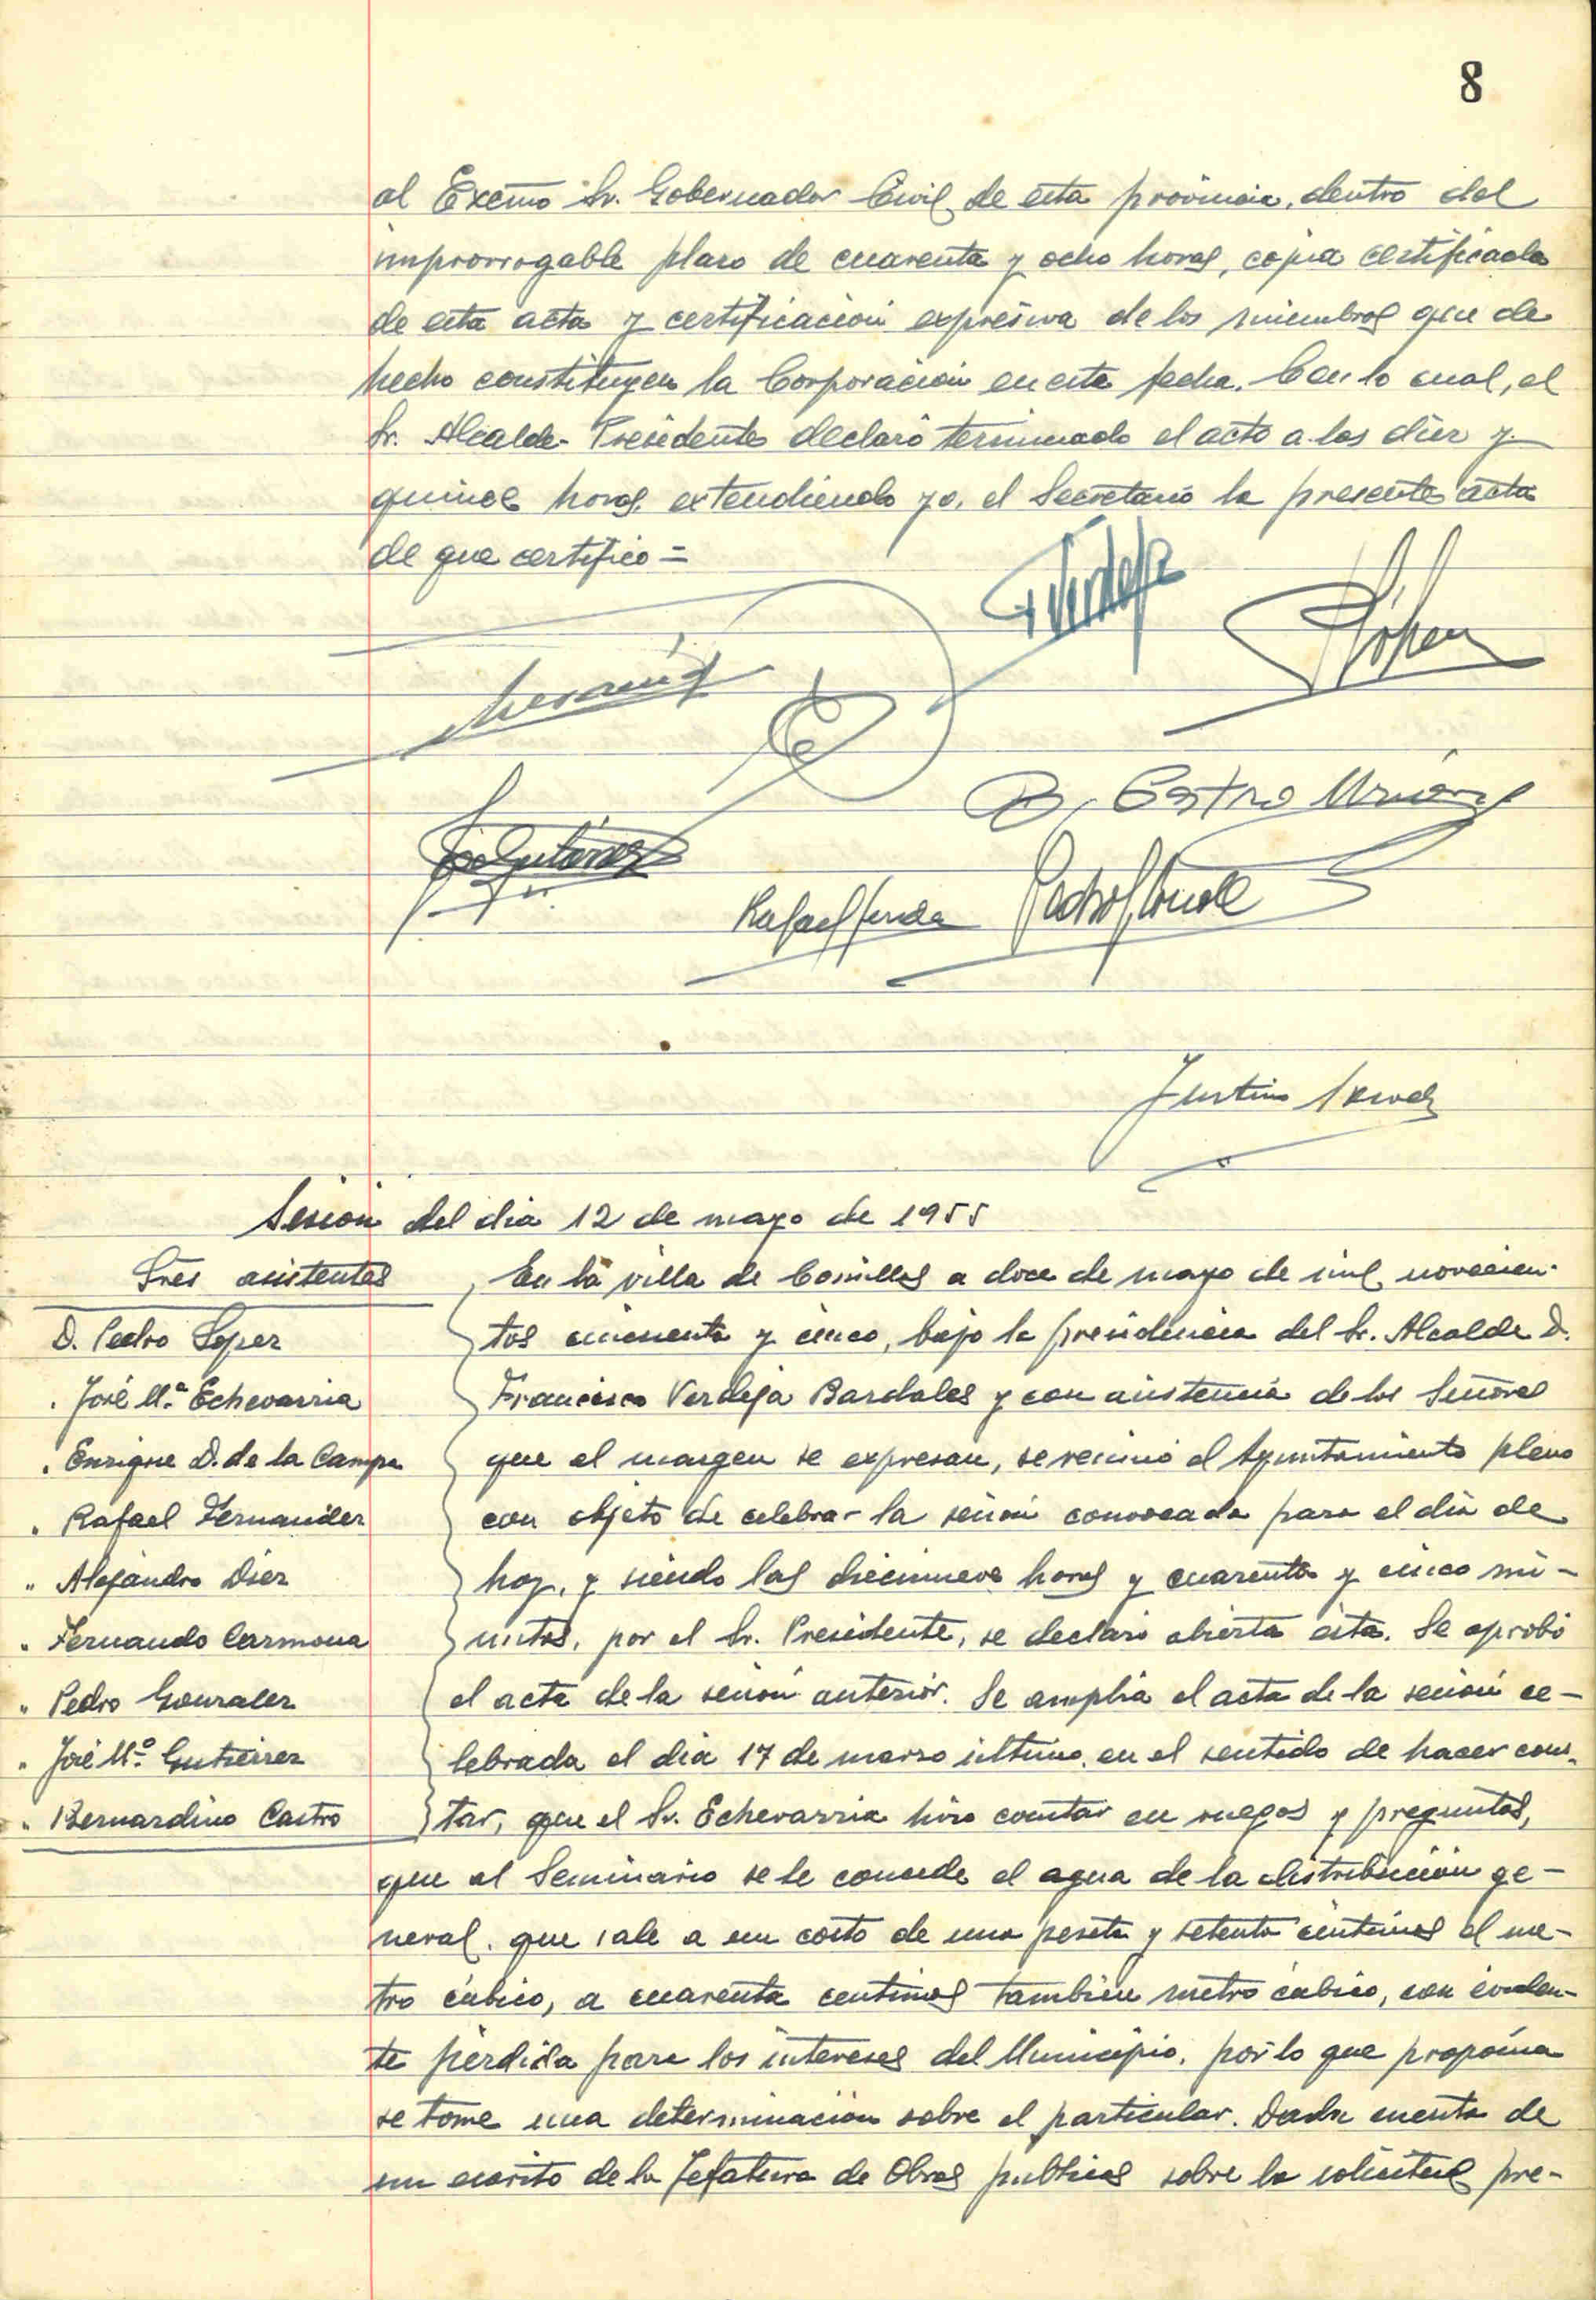 8
al Excmo Sr. Gobernador Civil de esta provincia, dentro del
improrrogable plazo de cuarenta y ocho horas, copia certificada
de esta acta y certificación expresiva de los miembros que de
hecho constituyen la Corporación en esta fecha. Con lo cual, el
Sr. Alcalde-Presidente declaró terminado el acto a las diez y
quince horas, extendiendo yo, el Secretario la presente acta
de que certifico =
G Verdeja
López
B. Castro
Gutiérrez
Rafael Pedro
Justino
Sesión del dia 12 de mayo de 1955
Sres asistentes
D. Pedro Lopez
. José Mª Echevarria
. Enrique D. de la Campa
. Rafael Fernandez
" Alejandro Diez
" Fernando Carmona
" Pedro Gonzalez
" José Mª Gutierrez
" Bernardino Castro
En la villa de Comillas a doce de mayo de mil novecien-
tos cincuenta y cinco, bajo la presidencia del Sr. Alcalde D.
Francisco Verdeja Bardales y con asistencia de los Señores
que al margen se expresan, se reunió el Ayuntamiento pleno
con objeto de celebrar la sesión convocada para el día de
hoy, y siendo las diecinueve horas y cuarenta y cinco mi-
nutos, por el Sr. Presidente, se declaró abierta ésta. Se aprobó
el acta de la sesión anterior. Se amplia el acta de la sesión ce-
lebrada el dia 17 de marzo último, en el sentido de hacer cons-
tar, que el Sr. Echevarria hizo constar en ruegos y preguntas,
que al Seminario se le concede el agua de la distribución ge-
neral, que sale a un costo de una peseta y setenta céntimos el me-
tro cúbico, a cuarenta centimos tambien metro cúbico, con eviden-
te pérdida para los intereses del Municipio, por lo que proponía
se tome una determinación sobre el particular. Dada cuenta de
un escrito de la Jefatura de Obras publicas sobre la solicitud pre-